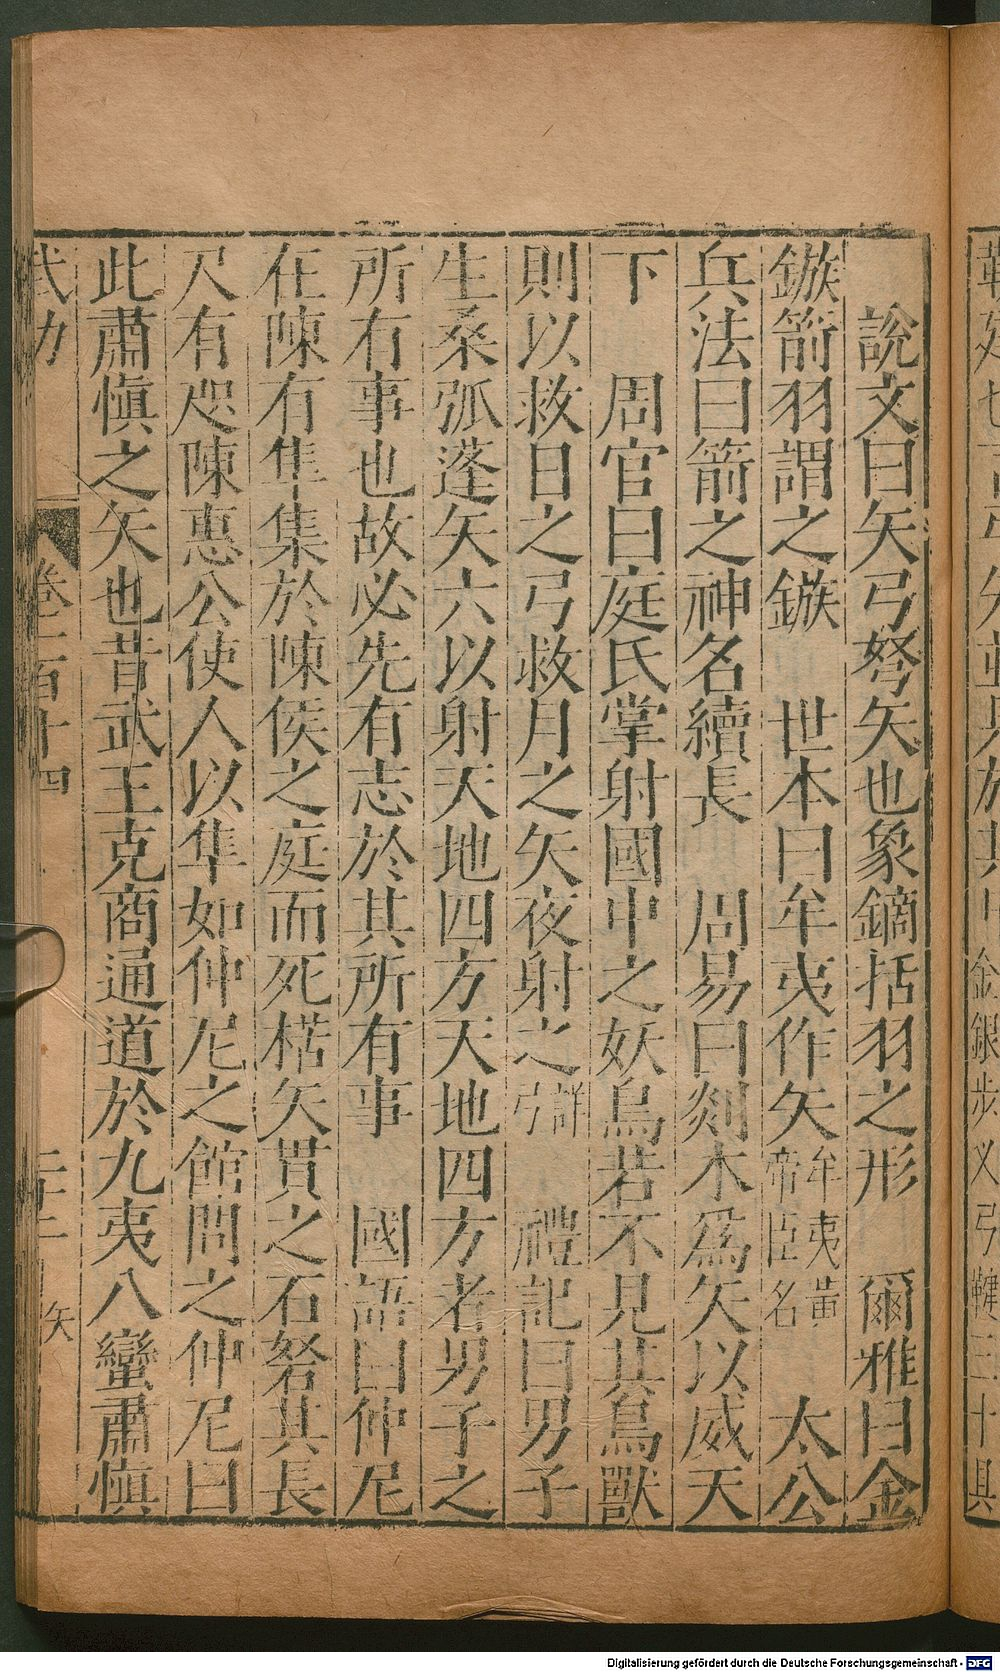 說文曰矢弓弩矢也象鏑括羽之形　爾雅曰金
鏃箭羽謂之鏃　世本曰牟夷作矢牟夷黃帝臣名　太公
兵法曰箭之神名續長　周易曰剡木為矢以威天
下　周官曰庭氏掌射國中之妖鳥若不見其鳥獸
則以救日之弓救月之矢夜射之　禮記曰男子
生桑弧蓬矢六以射天地四方天地四方者男子之
所有事也故必先有志於其所有事　國語曰仲尼
在陳有隼集於陳侯之庭而死楛矢貫之石砮其長
尺有咫陳惠公使人以隼如仲尼之館問之仲尼曰
此肅慎之矢也昔武王克商通道於九夷八蠻肅慎
武功　卷二百十四　二十二　矢
金銀步义弓鞬三十具
Digitalisierung gefördert durch die Deutsche Forschungsgemeinschaft - DFG